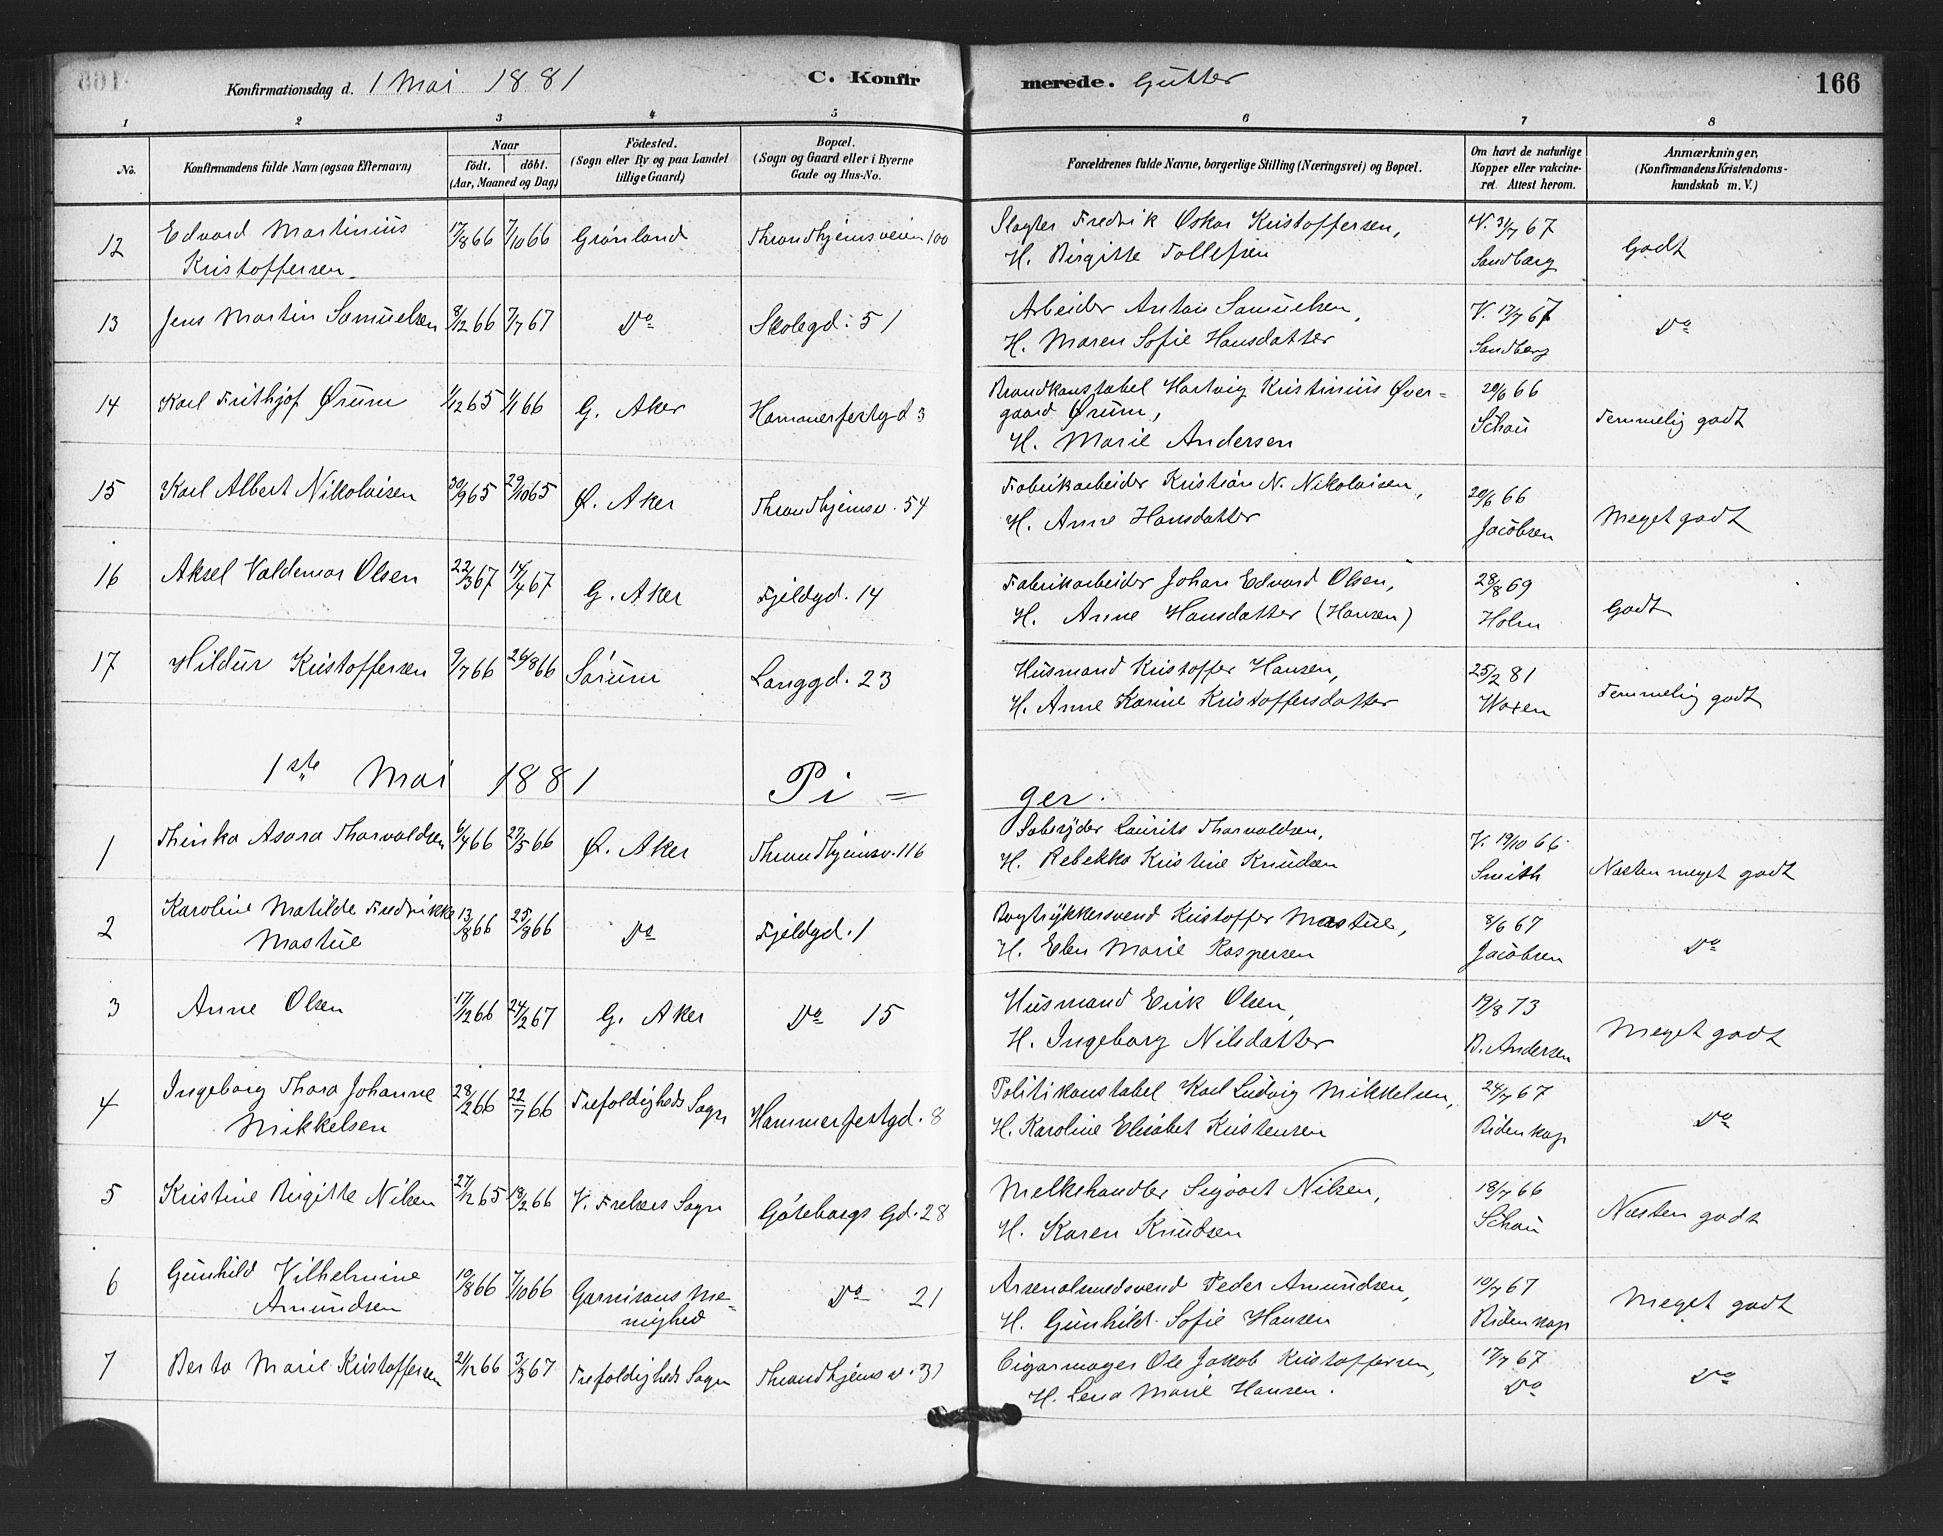 Konfirmationsdag d. 1 Mai 1881 C. Konfirmerede. Gutter 166
1 2 3 4 5 6 7 8
No. Konfirmandens fulde Navn (ogsaa Efternavn) Naar födt. döbt. (Aar, Maaned og Dag) Födested. (Sogn eller By og paa Landet tillige Gaard) Bopæl. (Sogn og Gaard eller i Byerne Gade og Hus-No. Forældrenes fulde Navne, borgerlige Stilling (Næringsvei) og Bopæl. Om havt de naturlige Kopper eller vakcineret. Attest herom. Anmærkninger, (Konfirmandens Kristendomskundskab m. V.)
12 Edvard Martinius 17/8 66 7/10 66 Grønland Throndhjemsveien 100 Slagter Fredrik Oskar Kristoffersen, V. 31/7 67 Godt
Kristoffersen H. Birgitte Tollefsen Sandberg
13 Jens Martin Samuelsen 8/12 66 7/7 67 Do Skolegd: 51 Arbeider Anton Samuelsen, V. 17/7 67 Do
H. Maren Sofie Hansdatter Sandberg
14 Karl Frithjof Ørum 1/12 65 1/1 66 G. Aker Hammerfestgd 3 Brandkonstabel Hartvig Kristinius Øver= 20/6 66 Temmelig godt
gaard Ørum, Schou
H. Marie Andersen
15 Karl Albert Nikolaisen 30/9 65 29/10 65 Ø. Aker Throndhjemsv. 54 Fabrikarbeider Kristian N. Nikolaisen, 20/6 66 Meget godt
H. Anne Hansdatter Jacobsen
16 Aksel Valdemar Olsen 22/3 67 14/4 67 G. Aker Fjeldgd. 14 Fabrikarbeider Johan Edvard Olsen, 28/8 69 Godt
H. Anne Hansdatter (Hansen) Holm
17 Hildur Kristoffersen 9/7 66 26/8 66 Sørum Langgd. 23 Husmand Kristoffer Hansen, 25/2 81 Temmelig godt
H. Anne Karine Kristoffersdatter Woxen
1ste Mai 1881 Pi = ger.
1 Thinka Asora Thorvaldsen 6/4 66 27/5 66 Ø. Aker Throndhjemsv. 116 Laurits Thorvaldsen, V. 19/10 66 Næsten meget godt
H. Rebekka Kristine Knudsen Smith
2 Karoline Matilde Fredrikke 13/8 66 25/8 66 Do Fjeldgd. 1 Bogtrykkersvend Kristoffer Mastue, 8/6 67 Do
Mastue H. Elen Marie Kaspersen Jacobsen
3 Anne Olsen 17/12 66 24/2 67 G. Aker Do 15 Husmand Erik Olsen, 19/8 73 Meget godt
H. Ingeborg Nilsdatter B. Andersen
4 Ingeborg Thora Johanne 28/2 66 22/7 66 Trefoldigheds Sogn Hammerfestgd. 8 Politikonstabel Karl Ludvig Mikkelsen, 24/7 67 Do
Mikkelsen H. Karoline Elisabet Kristensen Bidenkap
5 Kristine Birgitte Nilsen 27/12 65 18/2 66 V. Frelsers Sogn Göteborgs Gd. 28 Melkehandler Sigvart Nilsen, 18/7 66 Næsten godt
H. Karen Knudsen Schou
6 Gunhild Vilhelmine 10/8 66 7/10 66 Garnisons Me- Do 21 Arsenalsmedsvend Peder Amundsen, 10/7 67 Meget godt
Amundsen nighed H. Gunhild Sofie Hansen Bidenkap
7 Berta Marie Kristoffersen 21/12 66 3/3 67 Trefoldigheds Sogn Throndhjemsv. 31 Cigarmager Ole Jakob Kristoffersen, 17/7 67 Do
H. Lena Marie Hansen. Do